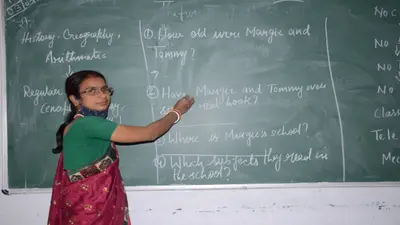 History, Geography,
Arithmetic
Regular
① How old were Margie and
Tommy?
?
② Have Margie and Tommy
read book?
③ Where is Margie's school?
④ Which subjects they read in
the school?
No
No
No
Class
Tele
Mec